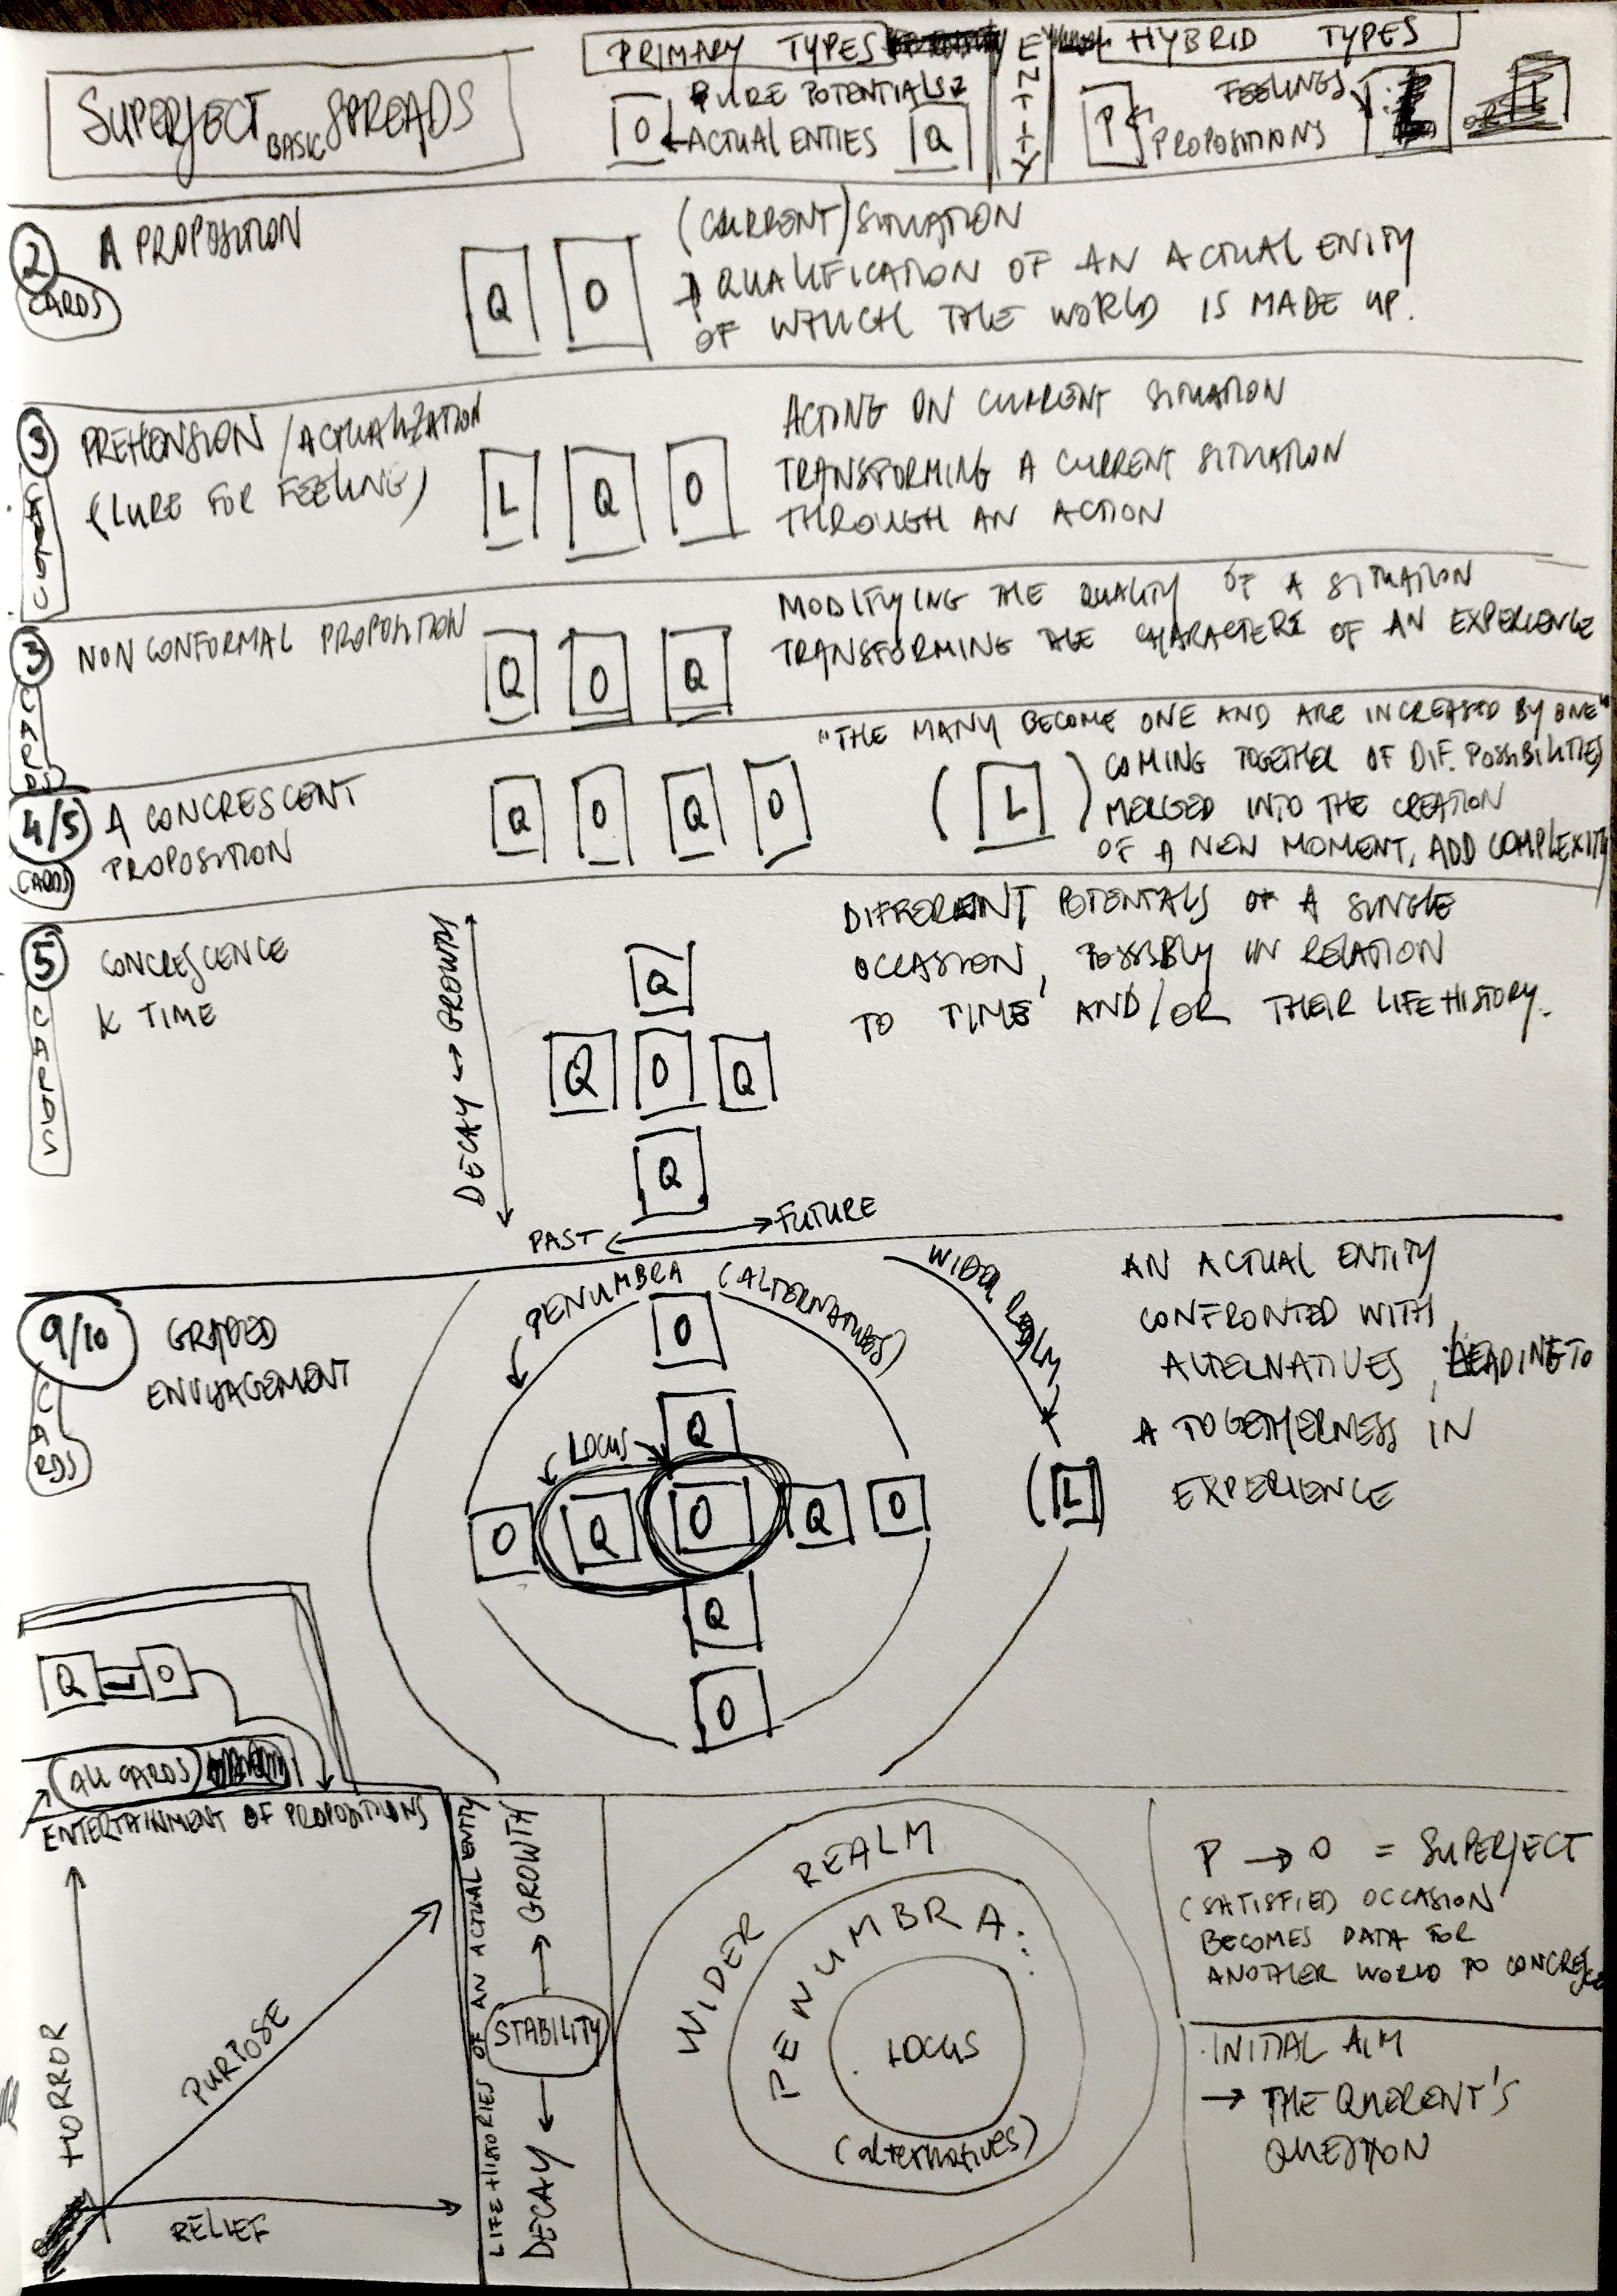 SUPERJECT BASIC SPREADS
PRIMARY TYPES
ENTITY
HYBRID TYPES
PURE POTENTIALS
O
ACTUAL ENTIES
Q
P
FEELINGS
PROPOSITIONS
L
OR
2
CARDS
A PROPOSITION
Q O
(CURRENT) SITUATION
QUALIFICATION OF AN ACTUAL ENTITY
OF WHICH THE WORLD IS MADE UP.
3
CARDS
PREHENSION / ACTUALIZATION
(LURE FOR FEELING)
L Q O
ACTING ON CURRENT SITUATION
TRANSFORMING A CURRENT SITUATION
THROUGH AN ACTION
3
CARDS
NON CONFORMAL PROPOSITION
Q O Q
MODIFYING THE QUALITY OF A SITUATION
TRANSFORMING THE CHARACTER OF AN EXPERIENCE
4/5
CARDS
A CONCRESCENT
PROPOSITION
Q O Q O
(L)
"THE MANY BECOME ONE AND ARE INCREASED BY ONE"
COMING TOGETHER OF DIF. POSSIBILITIES
MERGED INTO THE CREATION
OF A NEW MOMENT, ADD COMPLEXITY
5
CARDS
CONCRESCENCE
& TIME
DECAY ↔ GROWTH
Q
Q O Q
Q
PAST
FUTURE
DIFFERENT POTENTALS OF A SINGLE
OCCASION, POSSIBLY IN RELATION
TO TIME AND/OR THEIR LIFE HISTORY.
9/10
CARDS
GRADED
ENVISAGEMENT
PENUMBRA (ALTERNATIVES)
WIDER REALM
O
Q
LOCUS
O Q O Q O
(L)
Q
O
AN ACTUAL ENTITY
CONFRONTED WITH
ALTERNATIVES, LEADING TO
A TOGETHERNESS IN
EXPERIENCE
Q O
(ALL CARDS)
ENTERTAINMENT OF PROPOSITIONS
HORROR
PURPOSE
RELIEF
LIFE HISTORIES OF AN ACTUAL ENTITY
DECAY ← STABILITY → GROWTH
WIDER REALM
PENUMBRA
LOCUS
(alternatives)
P → O = SUPERJECT
(SATISFIED OCCASION
BECOMES DATA FOR
ANOTHER WORLD TO CONCRESCE
INITIAL AIM
→ THE QUERENT'S
QUESTION